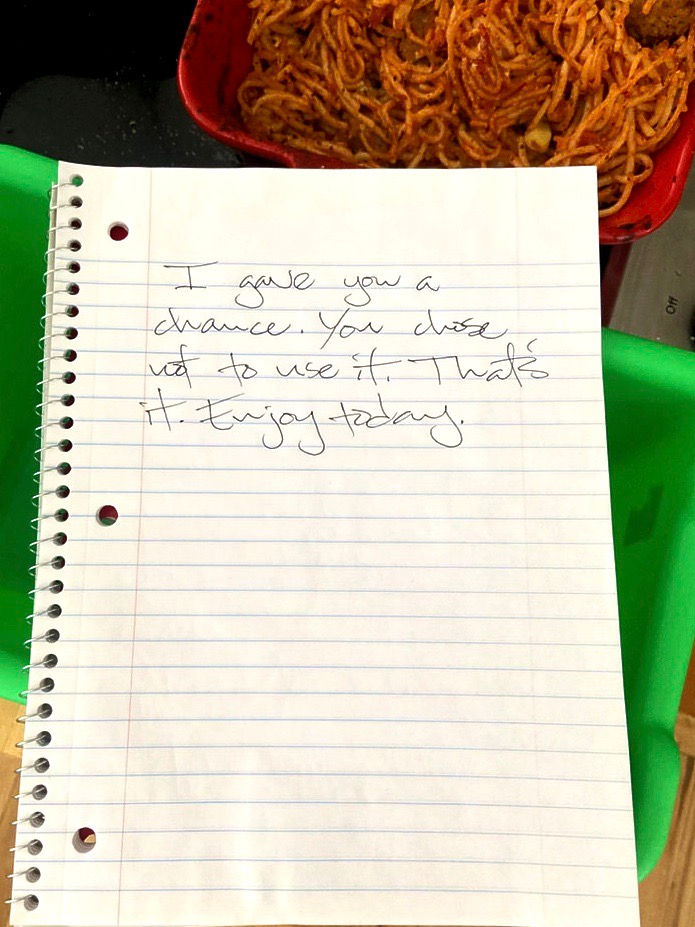 I gave you a
chance. You chose
not to use it. That's
it. Enjoy today.
Off